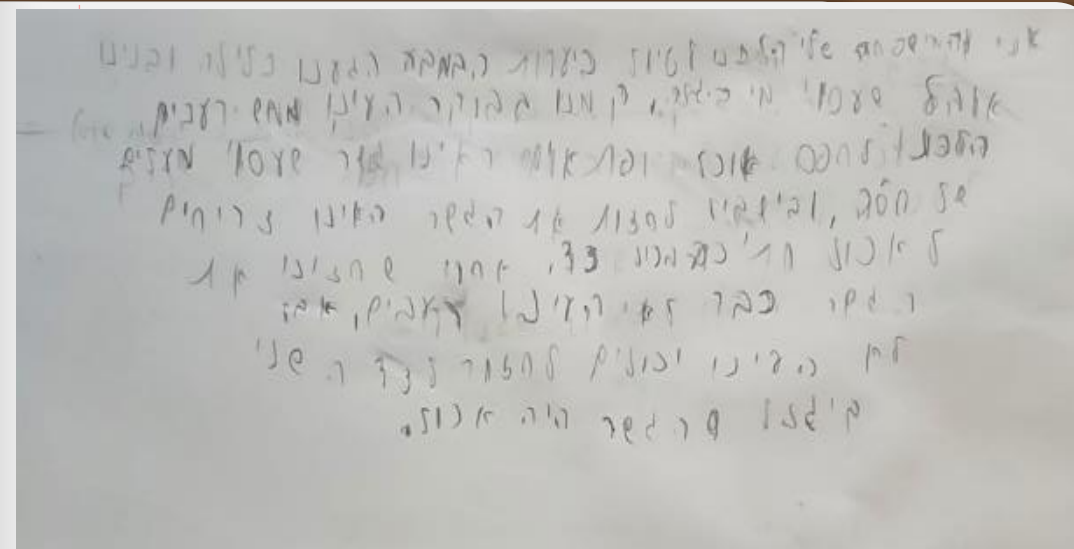 אני והמשפחה שלי הלכנו לטיול ביערות הבמבה הגענו בלילה ובנינו
אוהל שעשוי מ קמנו בבוקר היינו ממש רעבים
הלכנו לחפש אוכל ופתאום ראינו גשר שעשוי מעלים
של חסה, ובישביל לחצות את הגשר היינו צריכים
לאכול חתיכה צד. אחרי שחצינו את
הגשר כבר לא היינו רעבים, אבל
לא היינו יכולים לחזור לצד השני
ביגלל שהגשר היה אכול.